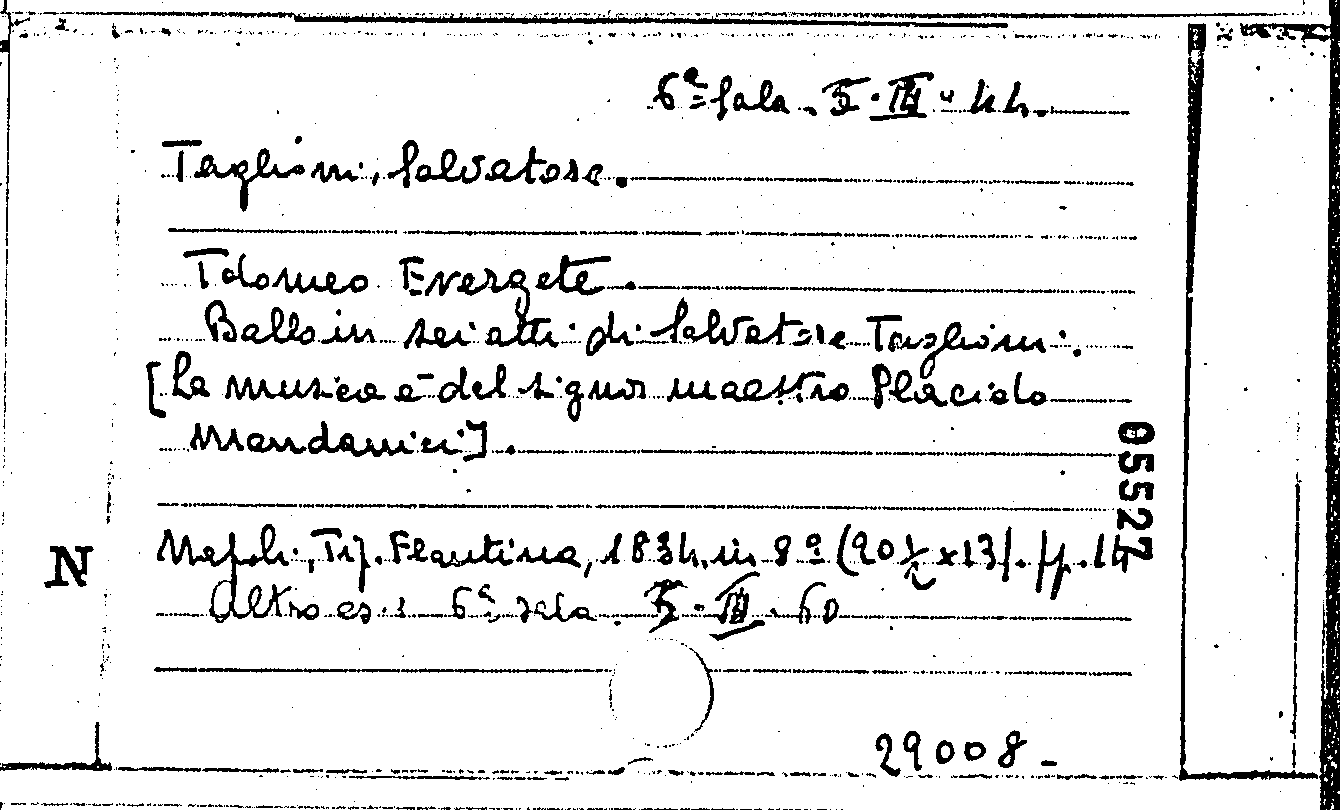 6ª Sala. 5. III. 44.
Taglioni, Salvatore.
Tolomeo Evergete.
Ballo in sei atti di Salvatore Taglioni.
[La musica è del signor maestro Placido
Mandanici].
05527
N
Napoli, Tip. Flautina, 1834. in 8º (20 ½ x 13). pp. 14
Altro es: 6ª sala. 5. III. 60
29008-